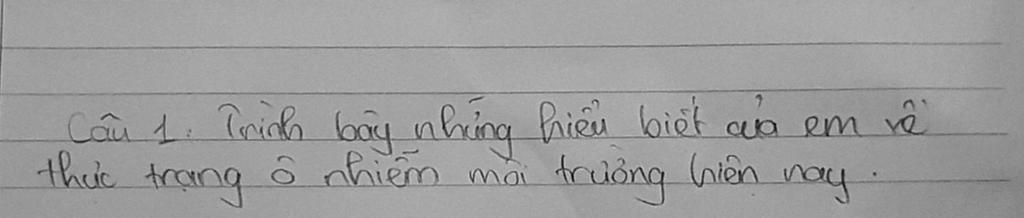 Câu 1. Trình bày những hiểu biết của em về
thực trạng ô nhiễm môi trường hiện nay.